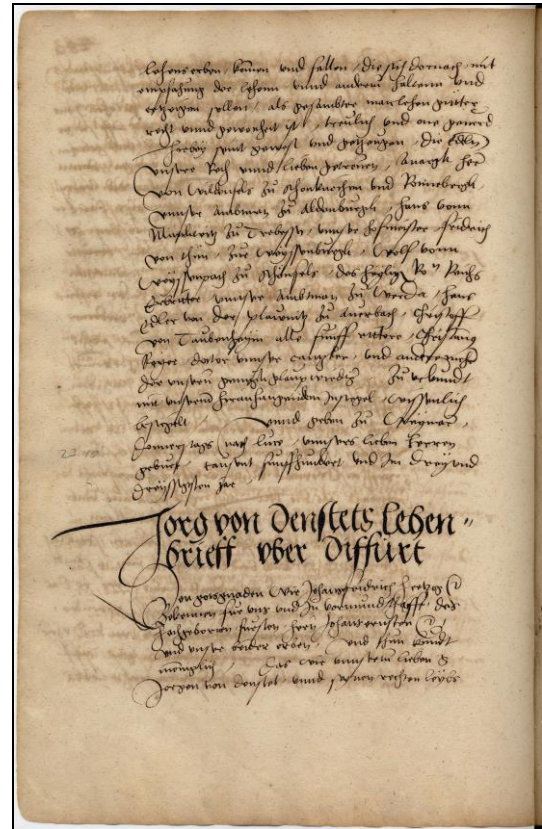 lehens erben, komen und fallen, die sich dornach, mit
empfahung der lehenn unnd andern haltenn und
ertzeigen sollen, als gesambter man lehen gutter
recht unnd gewonheit ist, treulich und one geverd
Hirbey seint gewest und getzeugen, die Edlen
unsere Reth unnd lieben getreuen, Anargk her
von Wildenfels zu Schonkirchen und Ronnebergk,
unser Ambtman zu Aldenburgk, Hans vonn
zu Trebessen, unser hofmeister, Fridrich
von Thun, zue Weyssenburgk, Wolf vonn
Weyssenpach zu Schonfels, des heyligen Ro. Reichs
Erbritter unser Ambtman zu Werda, Hans
Edler von der Plawnitz zu Auerbach, Christoff
von Taubenheym alle funff rittere, Christiann
Beyer doctor unser Cantzler, und anderer gnugk
der unsern glaupwirdig Zu urkundt
mit unserm hiranhangenden Insigel wissenlich
besigelt, unnd geben zu Weymar,
Dornerstags nach luce, unnsers lieben herren
geburt, tausent funffhundert und Im drey und
dreyssigsten jar
Jorg von Denstets Lehen "
brieff vber Diffurt
Von gots gnaden Wir Johansfridrich Hertzog
Bekennen fur uns und In vormundschafft des
hochgebornen fursten hern Johans ernsten
und unser beider erben, und thun kundt
menigklich, Das wir unnserm lieben g
Jorgen von denstet, unnd seynen rechten leybs